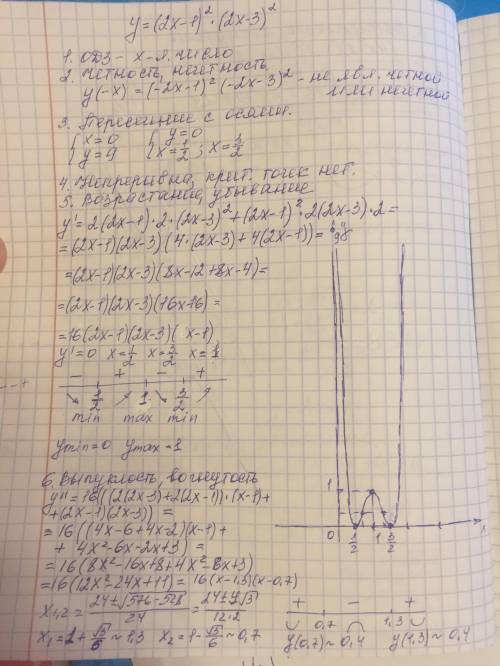 y=(2x-1)²·(2x-3)²
1. ОДЗ - x-л. число
2. Четность, нечетность
y(-x)=(-2x-1)²(-2x-3)² - не явл. четной
или нечетной
3. Пересечение с осями.
{x=0 {y=0
{y=9 {x=1/2; x=3/2
4. Непрерывна, крит. точек нет.
5. Возрастание, убывание
y'=2(2x-1)·2·(2x-3)²+(2x-1)²·2(2x-3)·2=
=(2x-1)(2x-3)(4·(2x-3)+4(2x-1))=
=(2x-1)(2x-3)(8x-12+8x-4)=
=(2x-1)(2x-3)(16x-16)=
=16(2x-1)(2x-3)(x-1)
y'=0 x=1/2 x=3/2 x=1
- + - +
↘ 1/2 ↗ 1 ↘ 3/2 ↗
min max min
ymin=0 ymax=1
6. Выпуклость, вогнутость
y''=16((2(2x-3)+2(2x-1))·(x-1)+
+(2x-1)(2x-3))=
=16((4x-6+4x-2)(x-1)+
+4x²-6x-2x+3)=
=16(8x²-16x+8+4x²-8x+3)
=16(12x²-24x+11)=16(x-1,3)(x-0,7)
x1,2=(24±√576-528)/24=(24±4√3)/12·2
x1=1+√3/6~1,3 x2=1-√3/6~0,7
+ - +
0,7 1,3
y(0,7)~0,4 y(1,3)~0,4
1
0 1/2 1 3/2 x